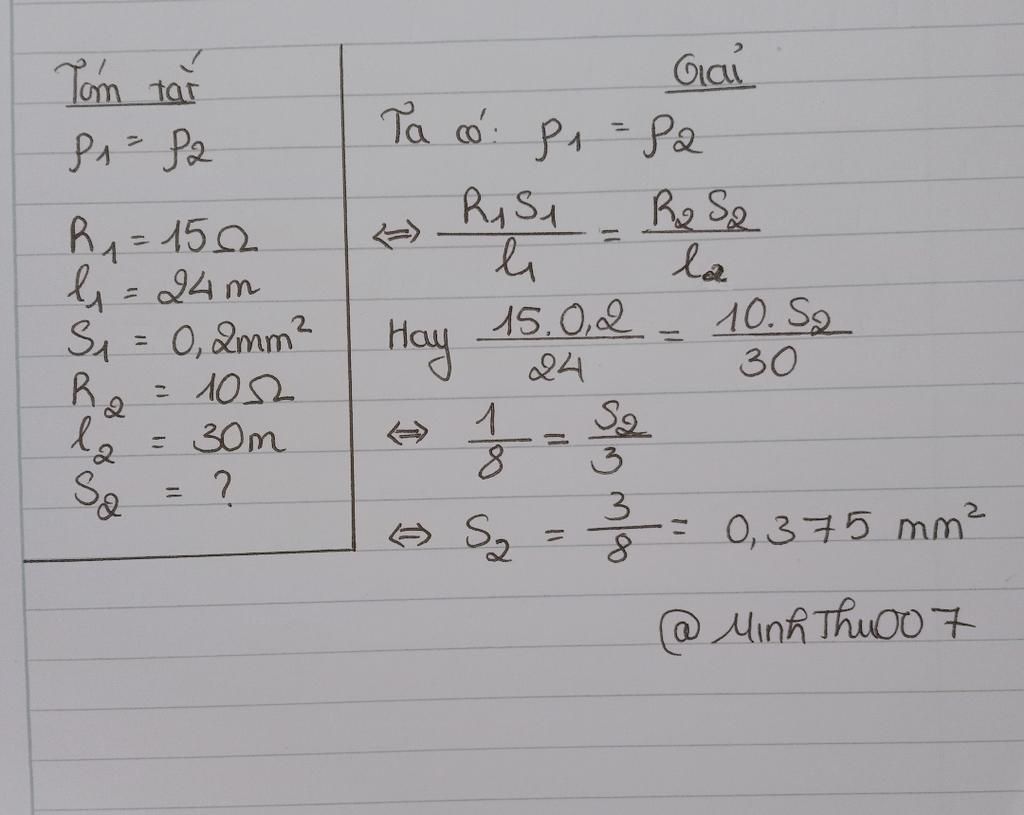 Tóm tắt
ρ1 = ρ2
R1 = 15Ω
l1 = 24m
S1 = 0,2mm²
R2 = 10Ω
l2 = 30m
S2 = ?
Giải
Ta có: ρ1 = ρ2
⇔ R1S1/l1 = R2S2/l2
Hay 15.0,2/24 = 10.S2/30
⇔ 1/8 = S2/3
⇔ S2 = 3/8 = 0,375 mm²
@MinhThu007